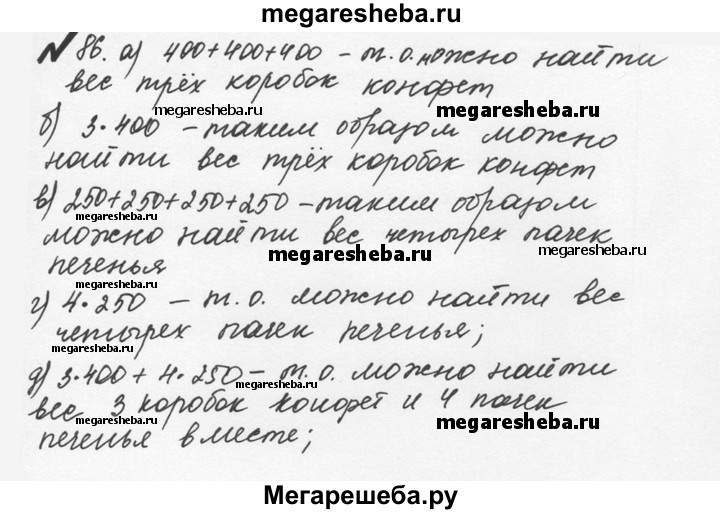 megaresheba.ru
№ 86. а) 400+400+400 – т. о. можно найти
вес трёх коробок конфет
megaresheba.ru
megaresheba.ru
б) 3·400 – таким образом можно
найти вес трёх коробок конфет
megaresheba.ru
в) 250+250+250+250 – таким образом
megaresheba.ru
можно найти вес четырех пачек
megaresheba.ru
megaresheba.ru
печенья
г) 4·250 – т. о. можно найти вес
четырех пачек печенья;
megaresheba.ru
д) 3·400 + 4·250 – т. о. можно найти
megaresheba.ru
вес 3 коробок конфет и 4 пачек
megaresheba.ru
megaresheba.ru
печенья вместе;
Мегарешеба.ру